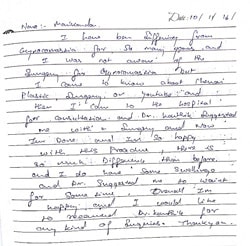 Dec: 10/11/16/
Name:- Manikanda
I have ban Suffering from
Gynecomastia for So many years and
I was not aware of the
Surgery for Gynecomastia but
I came to know about Chennai
Plastic Surgery on youtube and
then I came to the hospital
for consultation and Dr. karthik Suggested
me with a Surgery and Now
Im Done. and Im So happy
with this Procedure there is
so much Difference than before
and I do have some Swellings
and Dr. Suggested me to wait
for some time Overall Im
happy and I would like
to recommend Dr. karthik for
any kind of Surgeries Thankyou